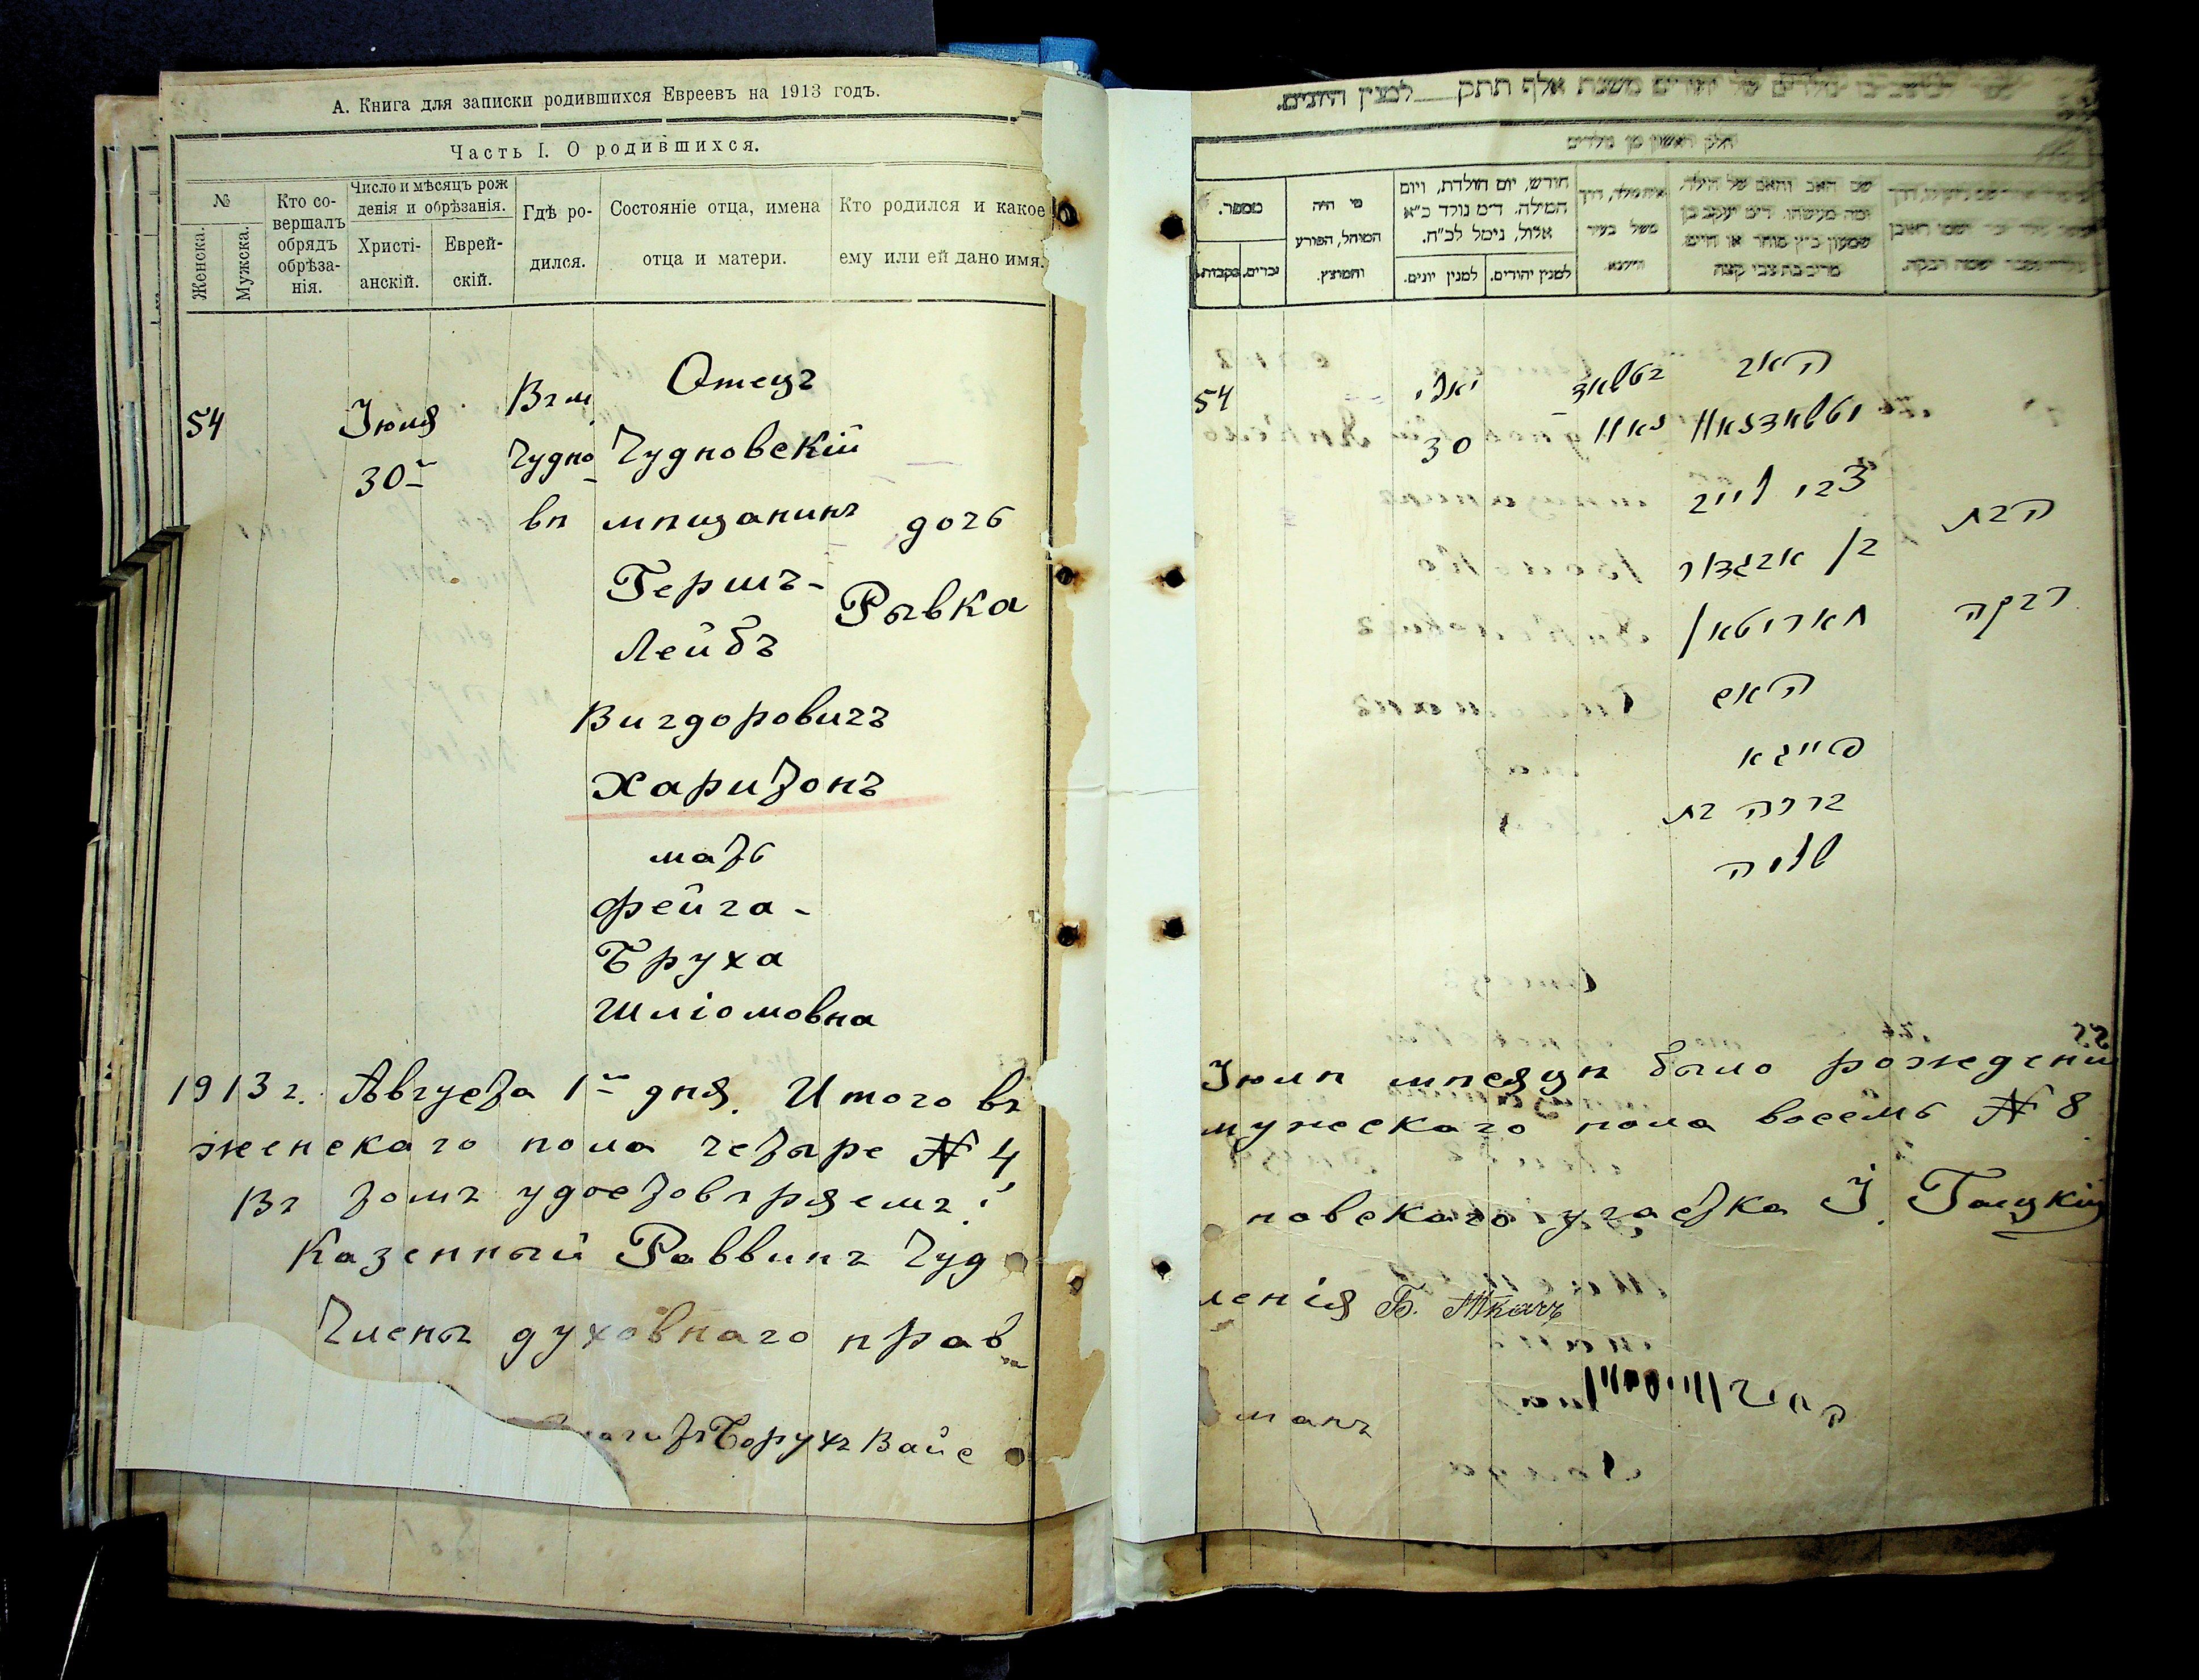 А. Книга для записки родившихся Евреевъ на 1913 годъ.
Часть I. О родившихся.
№
Женска.
Мужска.
Кто со-
вершалъ
обрядъ
обрѣза-
нія.
Число и мѣсяцъ рож
денія и обрѣзанія.
Христі-
анскій.
Еврей-
скій.
Гдѣ ро-
дился.
Состояніе отца, имена
отца и матери.
Кто родился и какое
ему или ей дано имя.
54
Іюля
30
Въ м.
Чудно
вѣ
Отецъ
Чудновскій
мѣщанинъ
Гершъ-
Лейбъ
Вигдоровичъ
Харитонъ
мать
Фейга-
Бруха
Шліомовна
дочь
Рывка
1913 г. Августа 1 дня. Итого въ
женскаго пола четыре № 4
Въ томъ удостовѣряемъ:
Казенный Раввинъ Чуд
Члены духовнаго прав
Борухъ Вайс
משנת אלף תתק למנין היונים.
חלק ראשון מן נולדים
מספר.
נקבות.
זכרים.
מי היה
המוהל, הפורע
והמוצץ.
חודש, יום הולדת, ויום
המילה. ד״מ נולד כ״א
אלול, נימל לכ״ח.
למנין יונים.
למנין יהודים.
שם האב והאם של הילד,
ומה מעשהו. ד״מ יעקב בן
שמעון כ״ץ סוחר או חייט.
54
יאלי
30
האב
צבי לייב
בן אביגדור
חאריטאן
האם
פייגא
ברכה בת
שלמה
הבת
רבקה
Іюлѣ мѣсяцѣ было рожденій
мужескаго пола восемь № 8
новскаго участка І. Гацкій
ленія Б. Ткачъ
манъ